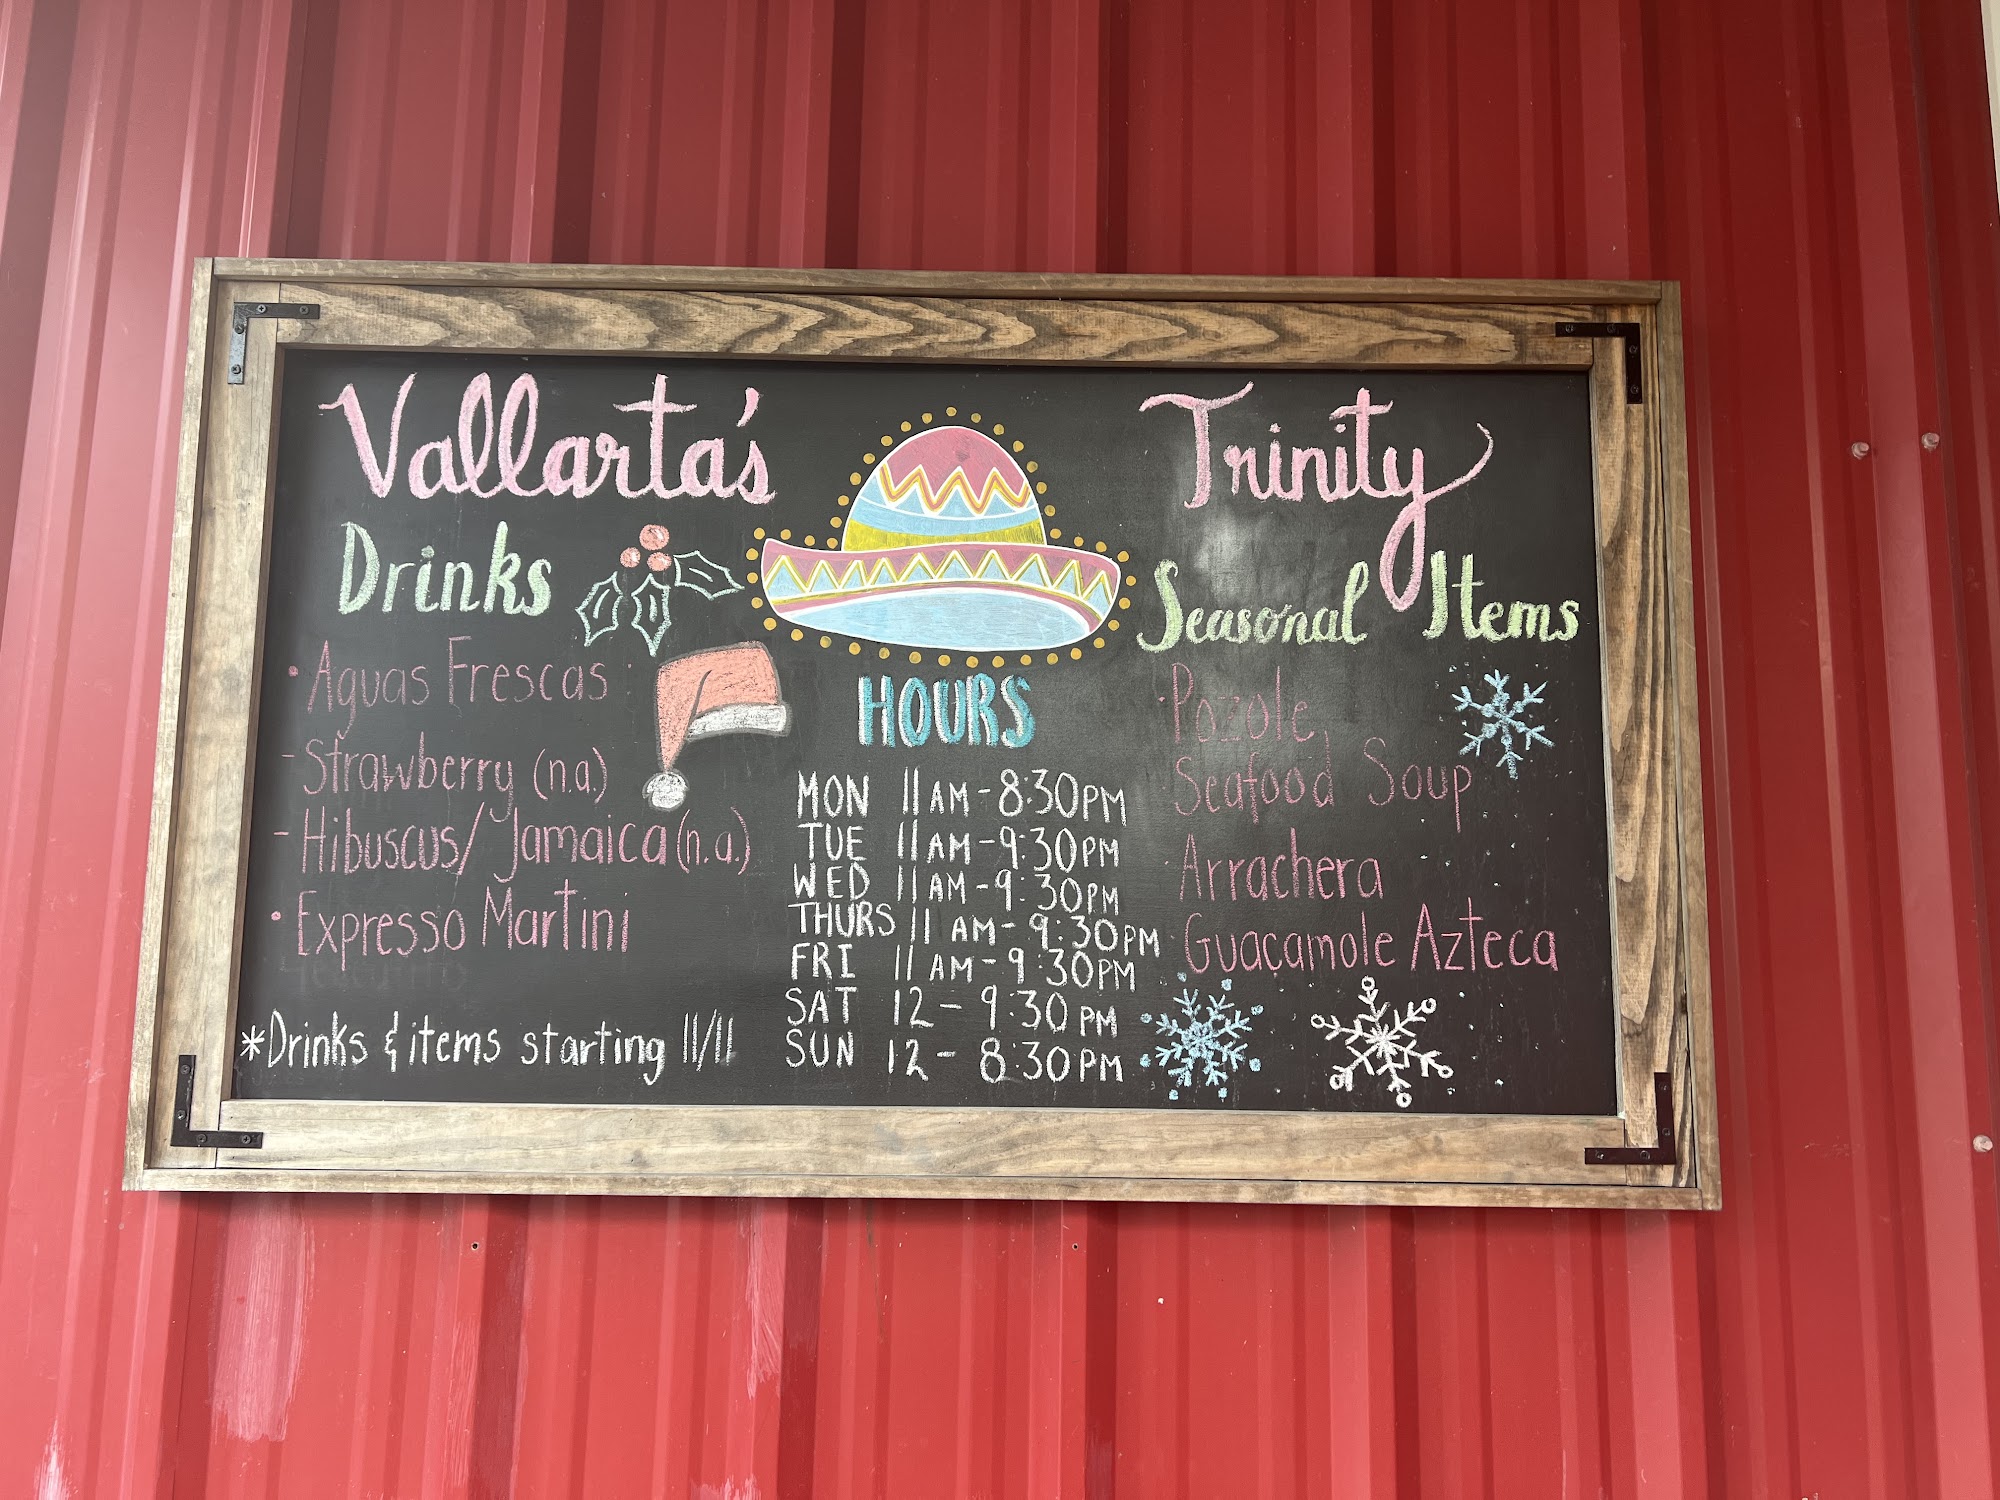 Vallarta's Trinity
Drinks
• Aguas Frescas
- Strawberry (n.a.)
- Hibuscus/Jamaica (n.a.)
• Expresso Martini
*Drinks & items starting 11/11
HOURS
MON 11AM-8:30PM
TUE 11AM-9:30PM
WED 11AM-9:30PM
THURS 11AM-9:30PM
FRI 11AM-9:30PM
SAT 12-9:30PM
SUN 12-8:30PM
Seasonal Items
·Pozole
Seafood Soup
Arrachera
Guaçamole Azteca